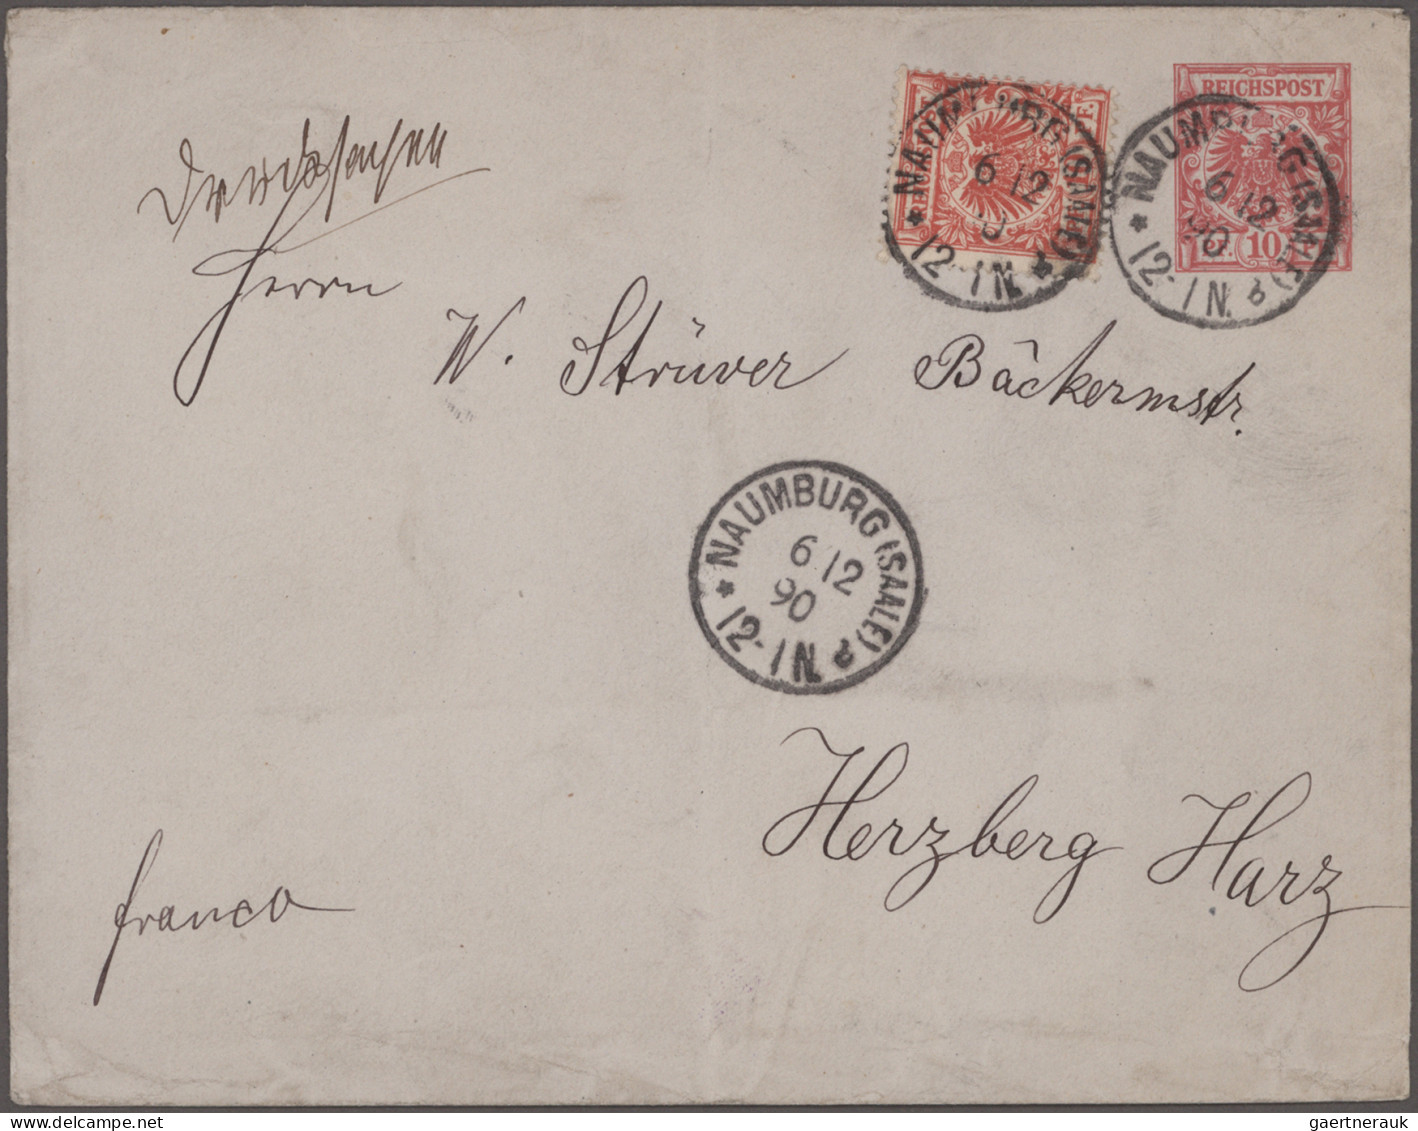 REICHSPOST
10
NAUMBURG (SAALE)
6 12
12-1N.
NAUMBURG (SAALE)
6 12
90
12-1N.
Drucksachen
Herrn
W. Strüver Bäckermstr.
NAUMBURG (SAALE)
6 12
90
12-1N.
Herzberg Harz
franco
www.delcampe.net
gaertnerauk